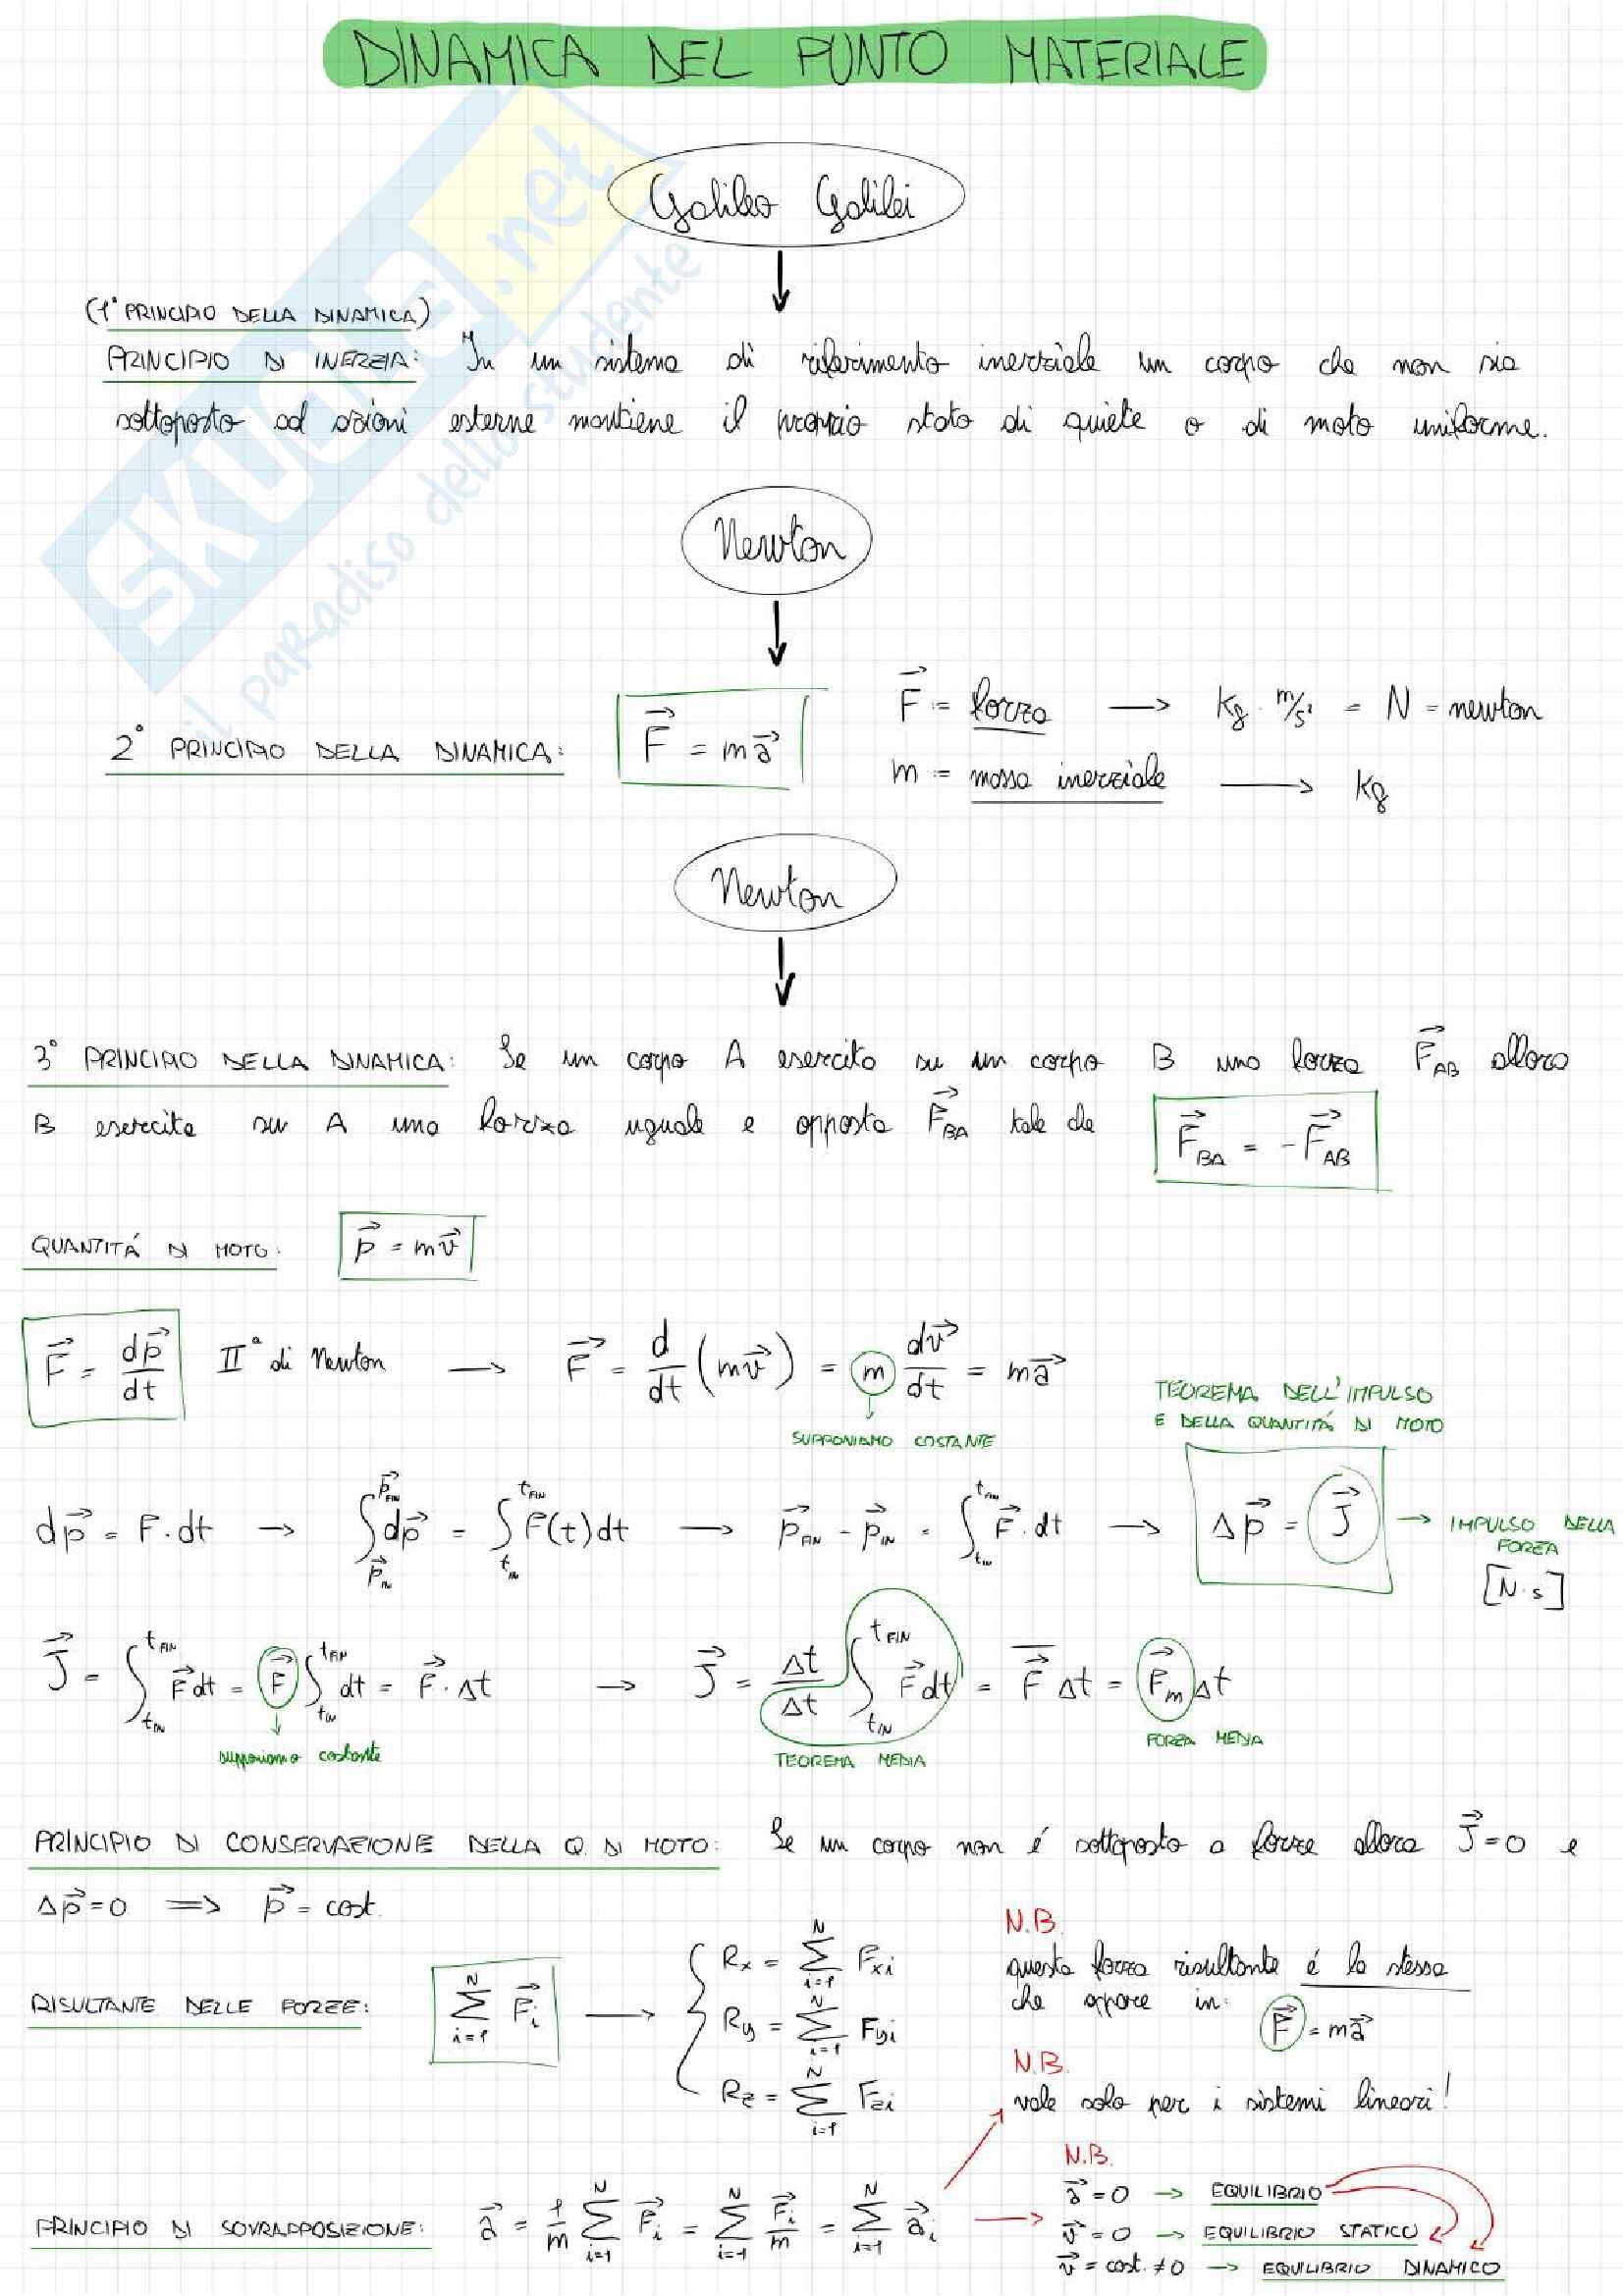 DINAMICA DEL PUNTO MATERIALE
SKUOLA.net
il paradiso dello studente
Galileo Galilei
(1° PRINCIPIO DELLA DINAMICA)
PRINCIPIO DI INERZIA: In un sistema di riferimento inerziale un corpo che non sia
sottoposto ad azioni esterne mantiene il proprio stato di quiete o di moto uniforme.
Newton
2° PRINCIPIO DELLA DINAMICA: F⃗ = ma⃗
F⃗ := forza → kg · m/s² = N = newton
m := massa inerziale → kg
Newton
3° PRINCIPIO DELLA DINAMICA: Se un corpo A esercita su un corpo B una forza F⃗_AB allora
B esercita su A una forza uguale e opposta F⃗_BA tale che F⃗_BA = -F⃗_AB
QUANTITÁ DI MOTO: p⃗ = mv⃗
F⃗ = dp⃗/dt IIª di Newton → F⃗ = d/dt (mv⃗) = m dv⃗/dt = ma⃗
SUPPONIAMO COSTANTE
TEOREMA DELL'IMPULSO
E DELLA QUANTITÁ DI MOTO
dp⃗ = F·dt → ∫_{p⃗_IN}^{p⃗_FIN} dp⃗ = ∫_{t_IN}^{t_FIN} F(t)dt → p⃗_FIN - p⃗_IN = ∫_{t_IN}^{t_FIN} F⃗·dt → Δp⃗ = J⃗ → IMPULSO DELLA
FORZA
[N·s]
J⃗ = ∫_{t_IN}^{t_FIN} F⃗dt = F⃗ ∫_{t_IN}^{t_FIN} dt = F⃗·Δt → J⃗ = Δt/Δt ∫_{t_IN}^{t_FIN} F⃗dt = F̅⃗ Δt = F⃗_m Δt
supponiamo costante
TEOREMA MEDIA
FORZA MEDIA
PRINCIPIO DI CONSERVAZIONE DELLA Q. DI MOTO: Se un corpo non é sottoposto a forze allora J⃗=0 e
Δp⃗=0 ⟹ p⃗ = cost.
RISULTANTE DELLE FORZE: ∑_{i=1}^{N} F⃗_i →
R_x = ∑_{i=1}^{N} F_xi
R_y = ∑_{i=1}^{N} F_yi
R_z = ∑_{i=1}^{N} F_zi
N.B.
questa forza risultante é la stessa
che appare in: F⃗ = ma⃗
N.B.
vale solo per i sistemi lineari!
PRINCIPIO DI SOVRAPPOSIZIONE: a⃗ = 1/m ∑_{i=1}^{N} F⃗_i = ∑_{i=1}^{N} F⃗_i/m = ∑_{i=1}^{N} a⃗_i →
N.B.
a⃗ = 0 → EQUILIBRIO
v⃗ = 0 → EQUILIBRIO STATICO
v⃗ = cost. ≠ 0 → EQUILIBRIO DINAMICO